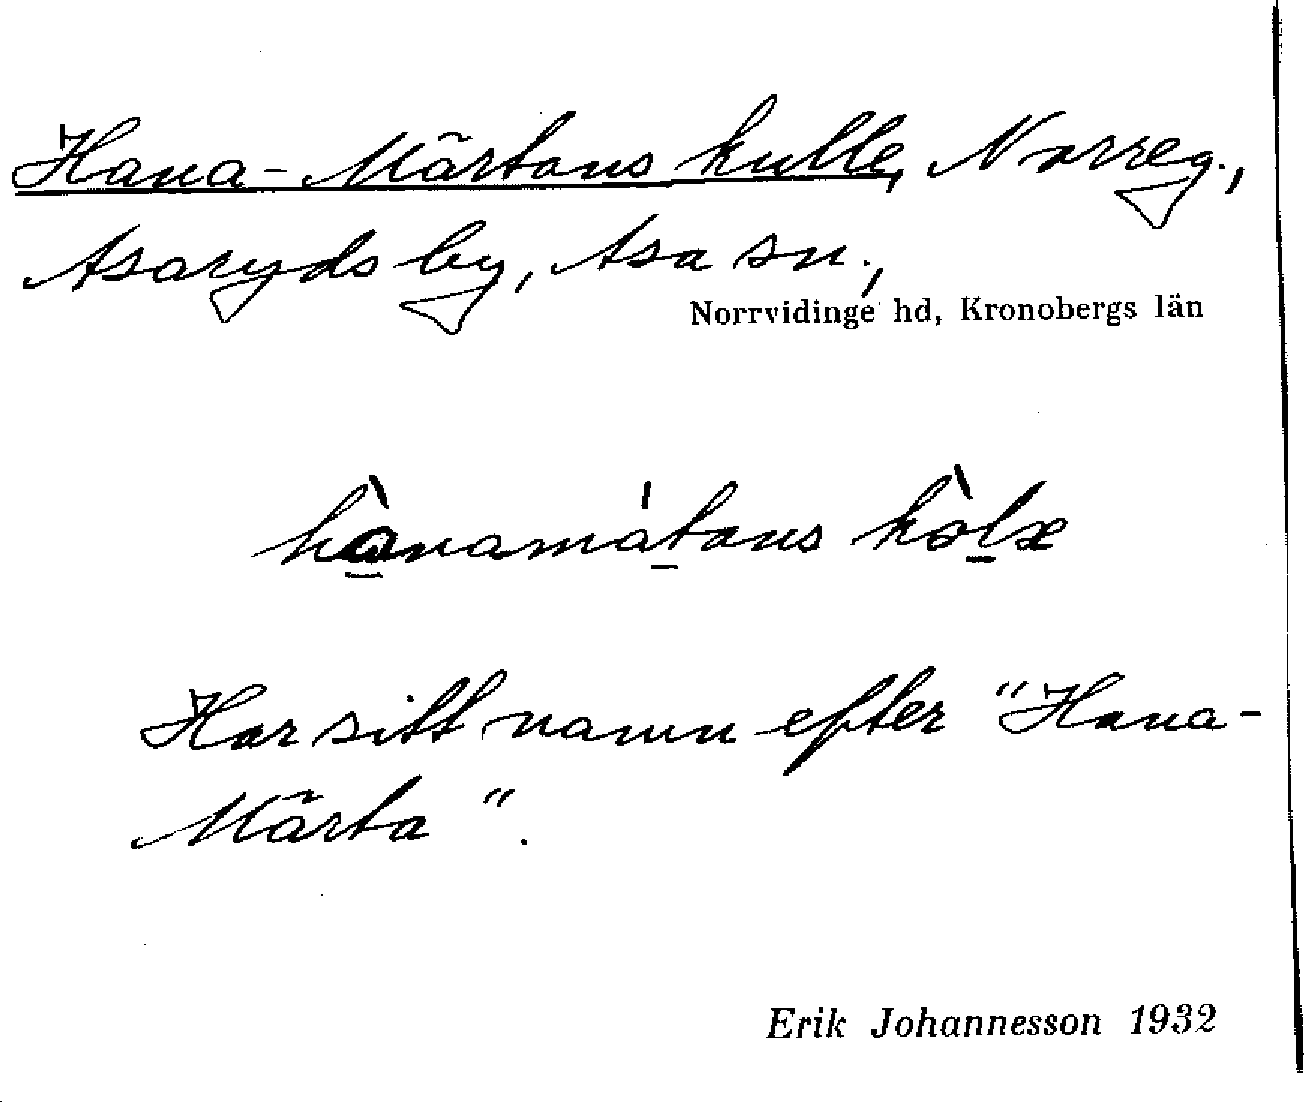 Hana-Märtans kulle, Norreg.,
Asaryds by, Asa sn.,
Norrvidinge hd, Kronobergs län
hànamátans kòlæ
Har sitt namn efter "Hana-
Märta".
Erik Johannesson 1932